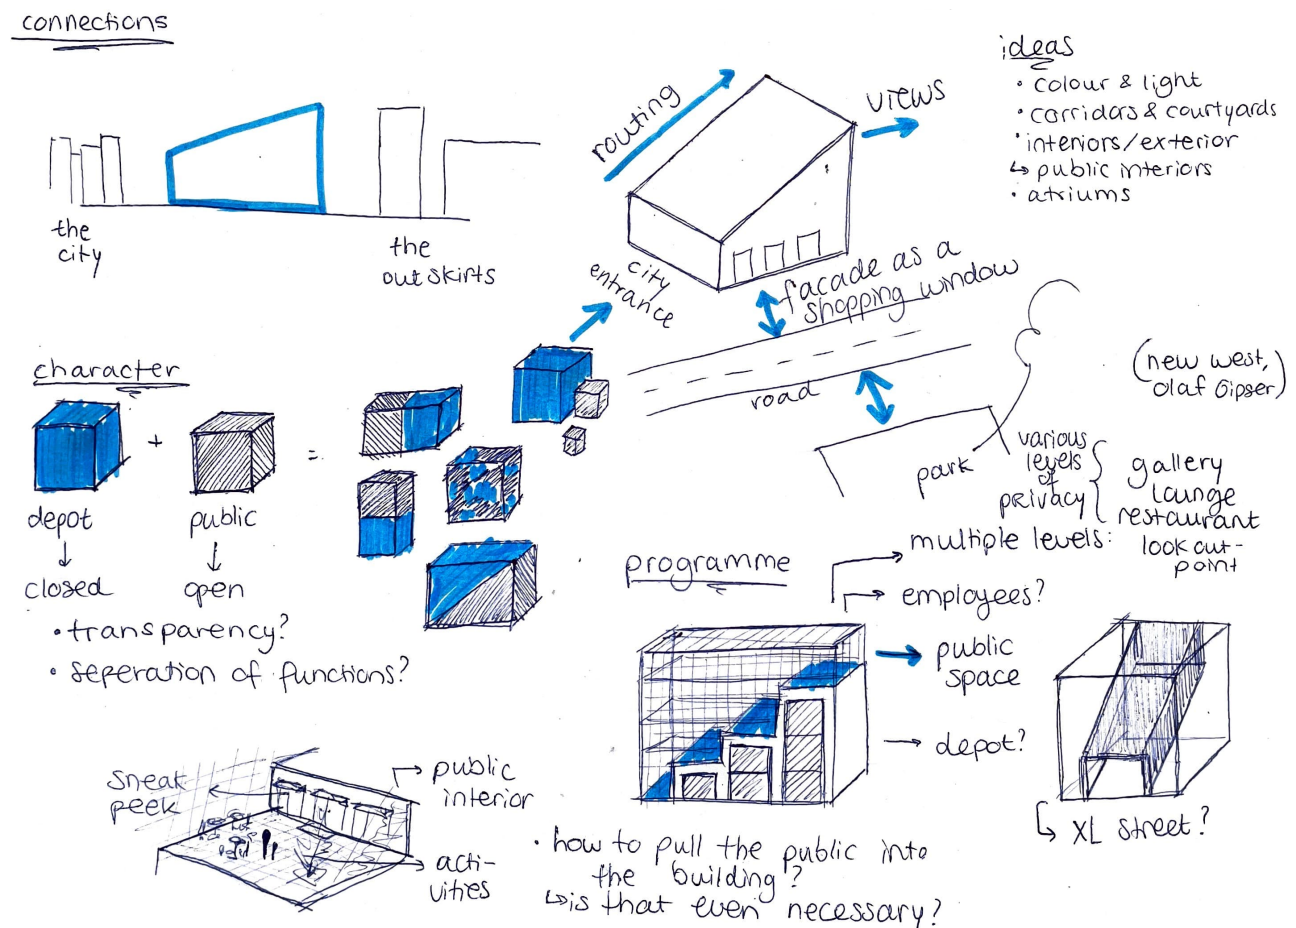 connections
the
city
the
outskirts
routing
views
city
entrance
facade as a
shopping window
road
park
ideas
• colour & light
• corridors & courtyards
• interiors/exterior
↳ public interiors
• atriums
(new west,
olaf Gipser)
character
+
=
depot
public
closed
open
• transparency?
• seperation of functions?
programme
various
levels
of
privacy
gallery
lounge
restaurant
multiple levels:
look out-
point
employees?
public
space
depot?
XL street?
sneak
peek
public
interior
acti-
vities
• how to pull the public into
the building?
↳ is that even necessary?